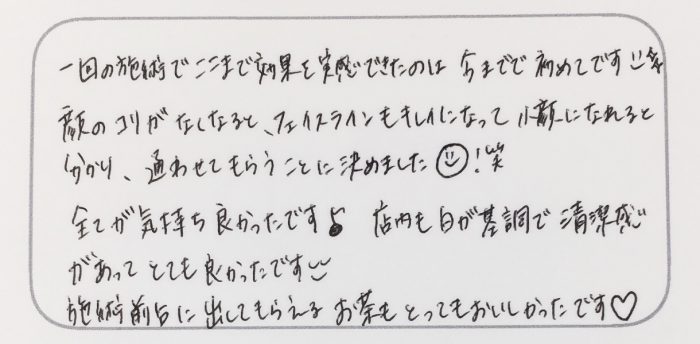 一回の施術でここまで効果を実感できたのは 今までで初めてです
顔のコリがなくなると、フェイスラインもキレイになって小顔になれると
分かり、通わせてもらうことに決めました😊!笑
全てが気持ち良かったです♪ 店内も白が基調で清潔感
があってとても良かったです
施術前后に出してもらえるお茶もとってもおいしかったです♡